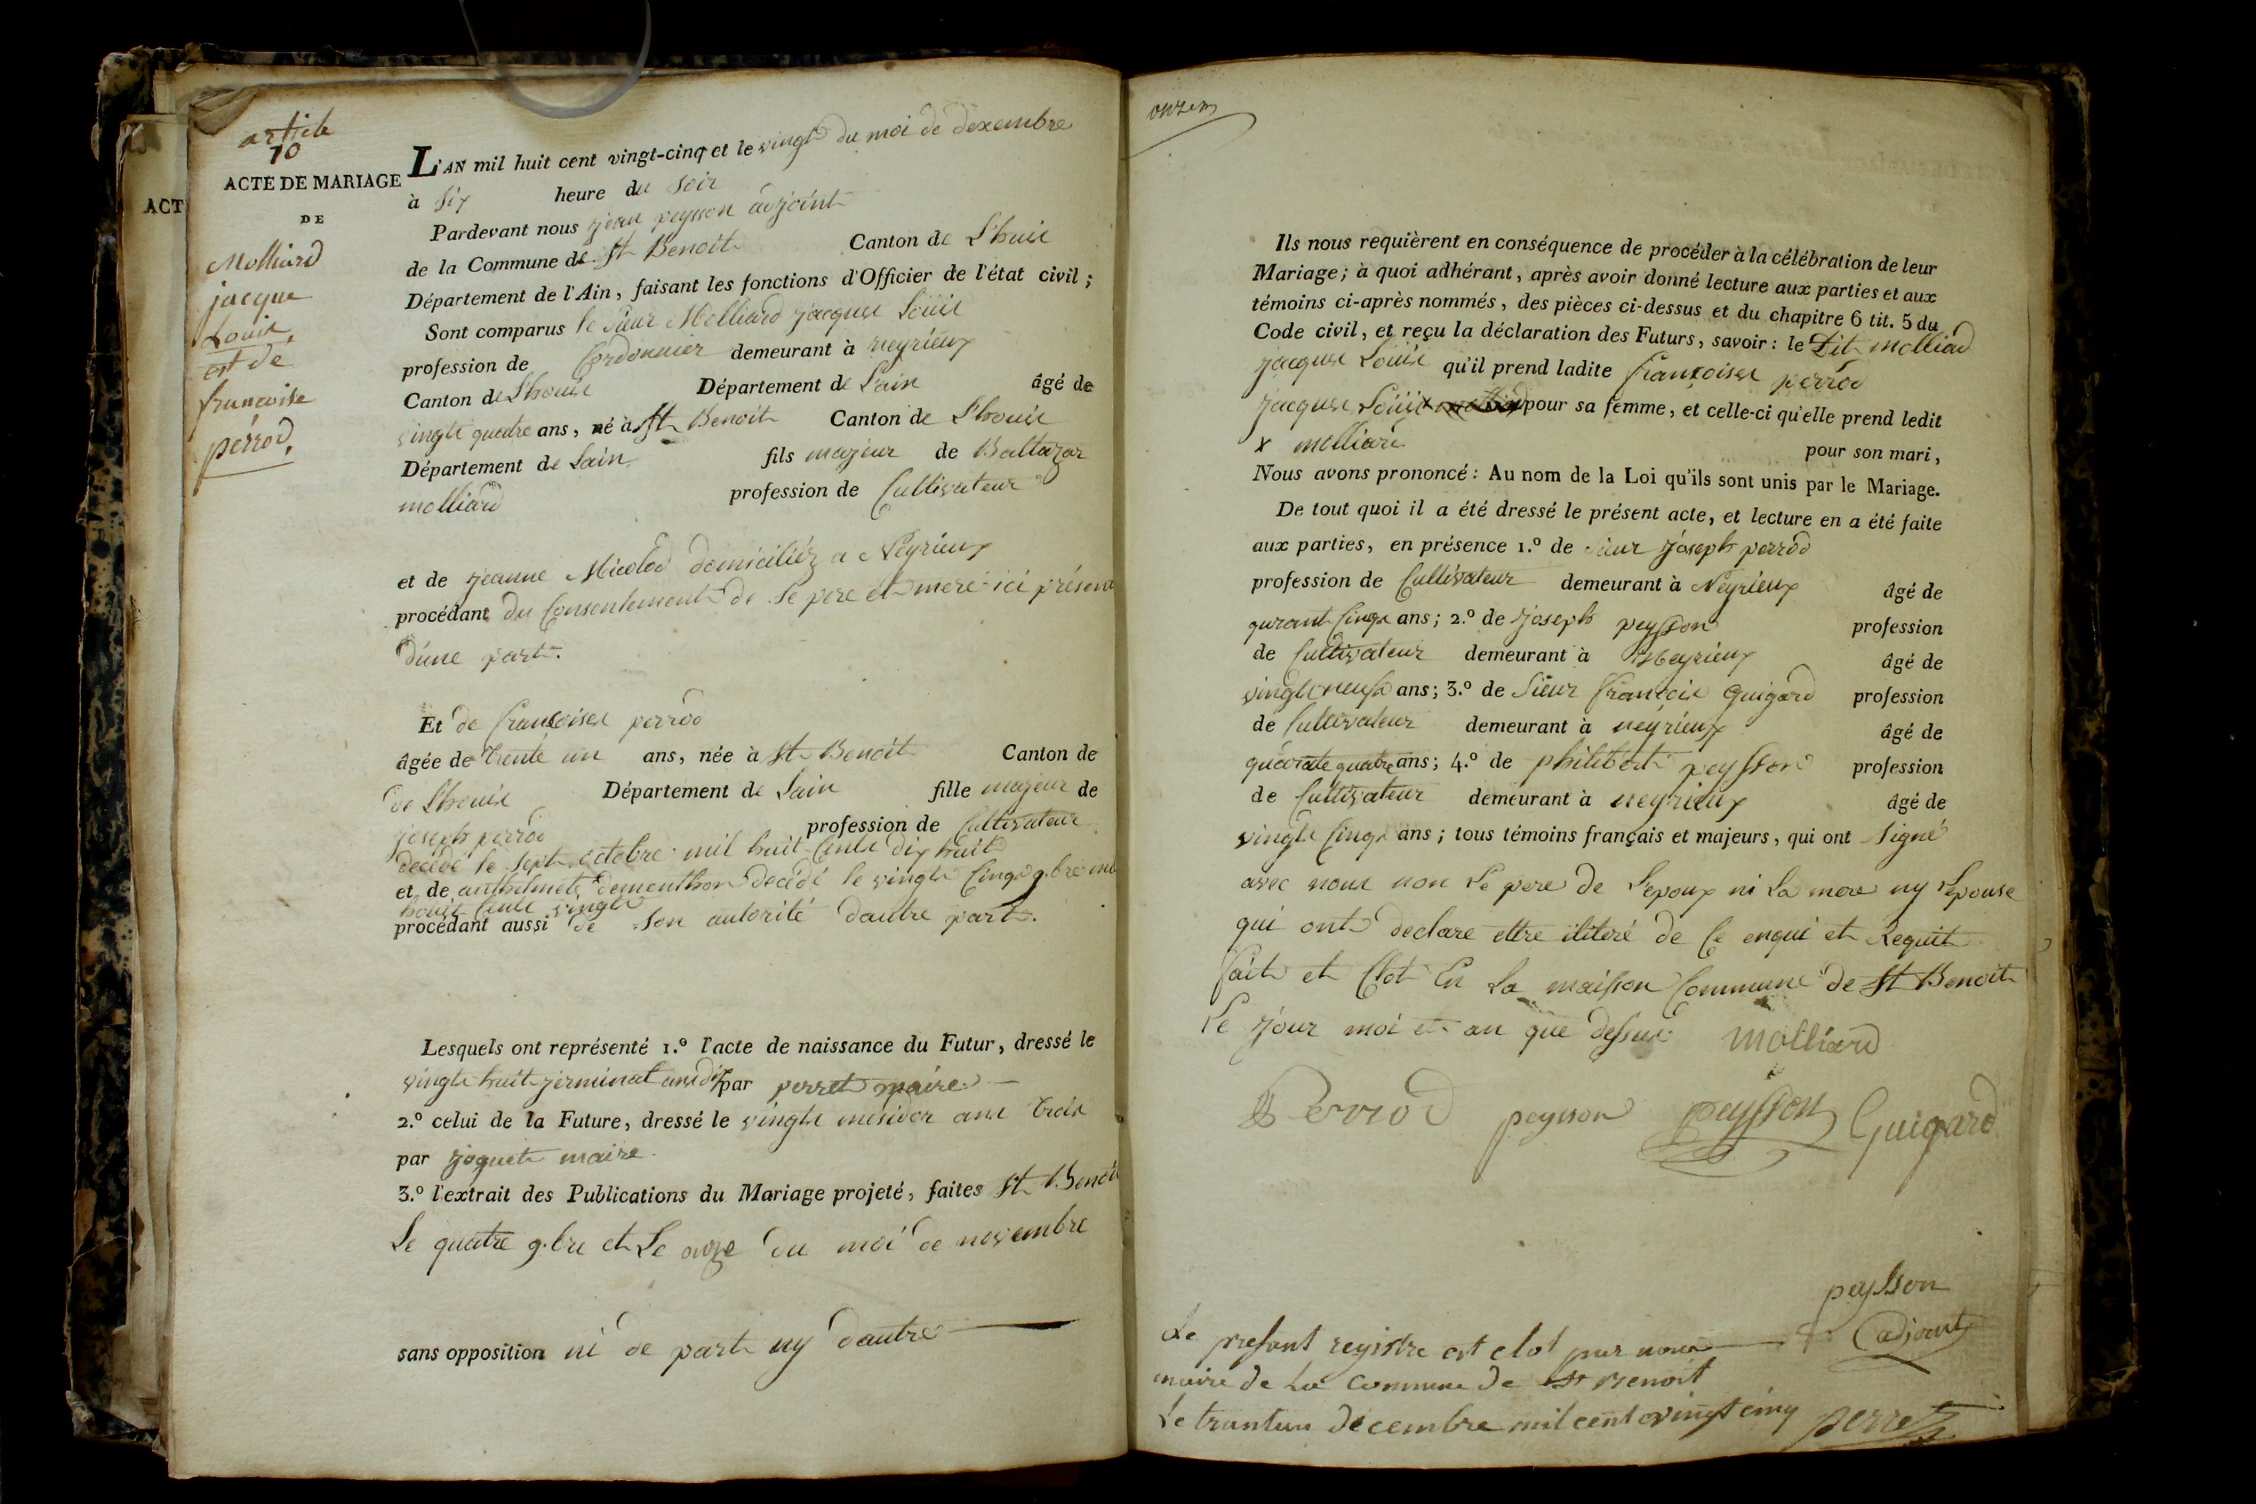 article
10
ACTE DE MARIAGE
DE
Molliard
jacque
Louis
et de
francoise
pérrod.
ACT
L'AN mil huit cent vingt-cinq et le vingt du moi de dexembre
à six heure du soir
Pardevant nous jean peysson adjoint
de la Commune de St Benoit Canton de L'huis
Département de l'Ain, faisant les fonctions d'Officier de l'état civil;
Sont comparus le sieur Molliard jacques Louis
profession de Cordonnier demeurant à neyrieux
Canton de Lhouis Département de Lain âgé de
vingte quatre ans, né à St Benoit Canton de Lhouis
Département de Lain fils majeur de Baltazar
molliard profession de Cultivateur
et de jeanne Micolod domiciliéz a Neyrieux
procédant du Consentement de Se pere et mere ici présent
d'une part.
Et de francoises perrod
âgée de trente un ans, née à St Benoit Canton de
de Lhouis Département de Lain fille majeur de
joseph perrod profession de Cultivateur
décédé le sept octobre mil huit Cents dix huit
et de anthelmete dementhon decédé le vingte Cinq 9.bre mil
houit Cents vingte
procédant aussi de son autorité dautre part.
Lesquels ont représenté 1.º l'acte de naissance du Futur, dressé le
vingte huit jerminal ans dix par perret maire
2.º celui de la Future, dressé le vingte mesidor ans trois
par joguet maire
3.º l'extrait des Publications du Mariage projeté, faites St Benoit
Le quatre 9.bre et Le onze du moi de novembre
sans opposition ni de part ny dautre
onzem
Ils nous requièrent en conséquence de procéder à la célébration de leur
Mariage; à quoi adhérant, après avoir donné lecture aux parties et aux
témoins ci-après nommés, des pièces ci-dessus et du chapitre 6 tit. 5 du
Code civil, et reçu la déclaration des Futurs, savoir: le Dit molliard
jacques Louis qu'il prend ladite francoises perrod
jacques Louis x pour sa femme, et celle-ci qu'elle prend ledit
x molliard pour son mari,
Nous avons prononcé: Au nom de la Loi qu'ils sont unis par le Mariage.
De tout quoi il a été dressé le présent acte, et lecture en a été faite
aux parties, en présence 1.º de sieur joseph perrod
profession de Cultivateur demeurant à Neyrieux âgé de
qurant Cinqs ans; 2.º de joseph peysson profession
de Cultivateur demeurant à Neyrieux âgé de
vingte neuf ans; 3.º de Sieur francois Guigard profession
de Cultivateur demeurant à neyrieux âgé de
quarate quatre ans; 4.º de philibert peysson profession
de Cultivateur demeurant à neyrieux âgé de
vingte Cinqs ans; tous témoins français et majeurs, qui ont Signé
avec nous non Le pere de L'epoux ni La mere ny Lepouse
qui ont declare ettre iliteré de Ce enqui et Requit
fait et Clot En La maisson Commune de St Benoit
Le jour moi et an que dessus Molliard
Perrod peysson peysson Guigard
peysson
adjoint
Le present registre est clot par nous
maire de La commune de St Benoit
Le trantun décembre mil cent vingt cinq perret